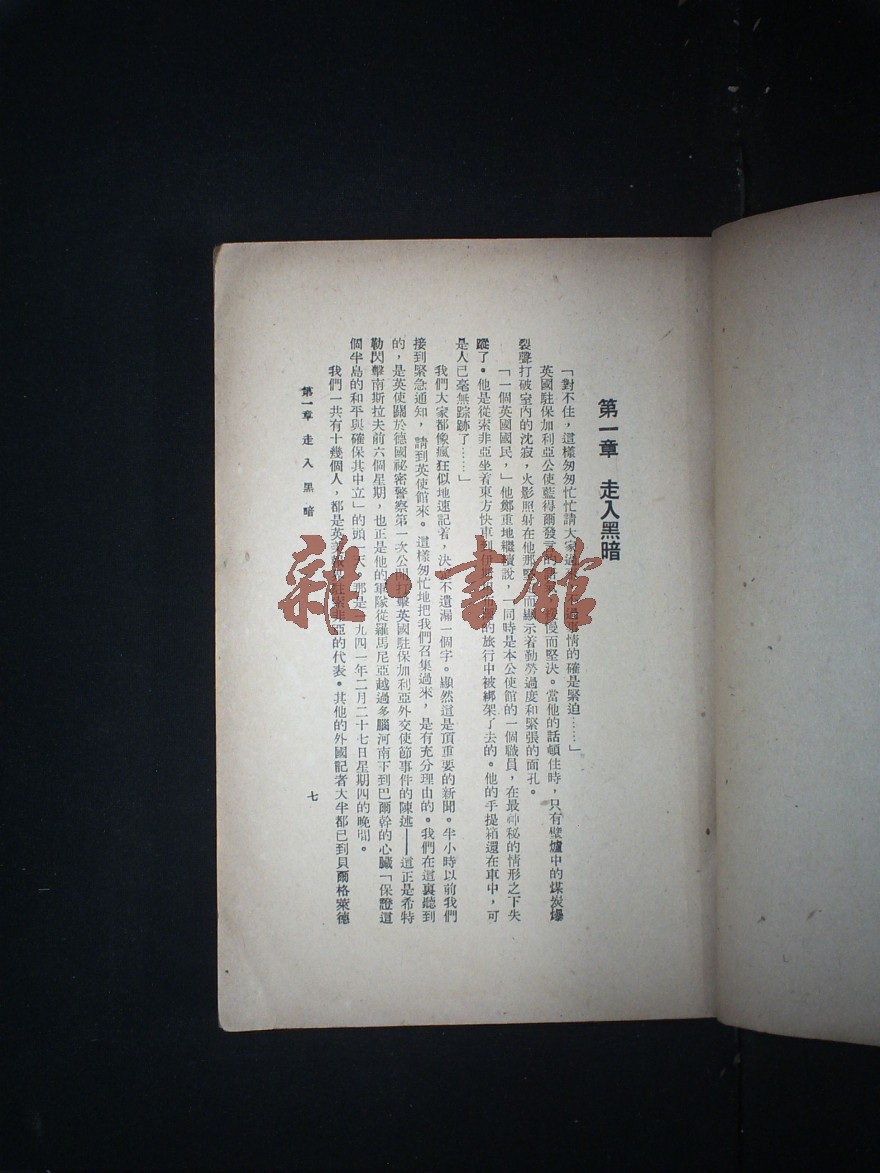 第一章 走入黑暗
「對不住，這樣匆匆忙忙請大家過 情的確是緊迫……」
英國駐保加利亞公使藍得爾發言的 慢而堅決。當他的話頓住時，只有壁爐中的煤炭爆
裂聲打破室內的沈寂，火影照射在他那堅 而顯示着勤勞過度和緊張的面孔。
「一個英國國民，」他鄭重地繼續說，「同時是本公使館的一個職員，在最神秘的情形之下失
蹤了。他是從索非亞坐着東方快車到伊 的旅行中被綁架了去的。他的手提箱還在車中，可
是人已毫無踪跡了……」
我們大家都像瘋狂似地速記着，決 不遺漏一個字。顯然這是頂重要的新聞。半小時以前我們
接到緊急通知，請到英使館來。這樣匆忙地把我們召集過來，是有充分理由的。我們在這裏聽到
的，是英使關於德國祕密警察第一次公開打擊英國駐保加利亞外交使節事件的陳述——這正是希特
勒閃擊南斯拉夫前六個星期，也正是他的軍隊從羅馬尼亞越過多腦河南下到巴爾幹的心臟「保證這
個半島的和平與確保其中立」的頭一天。那是一九四一年二月二十七日星期四的晚間。
我們一共有十幾個人，都是英美報 駐索非亞的代表。其他的外國記者大半都已到貝爾格萊德
第一章 走入黑暗
七
雜·書館